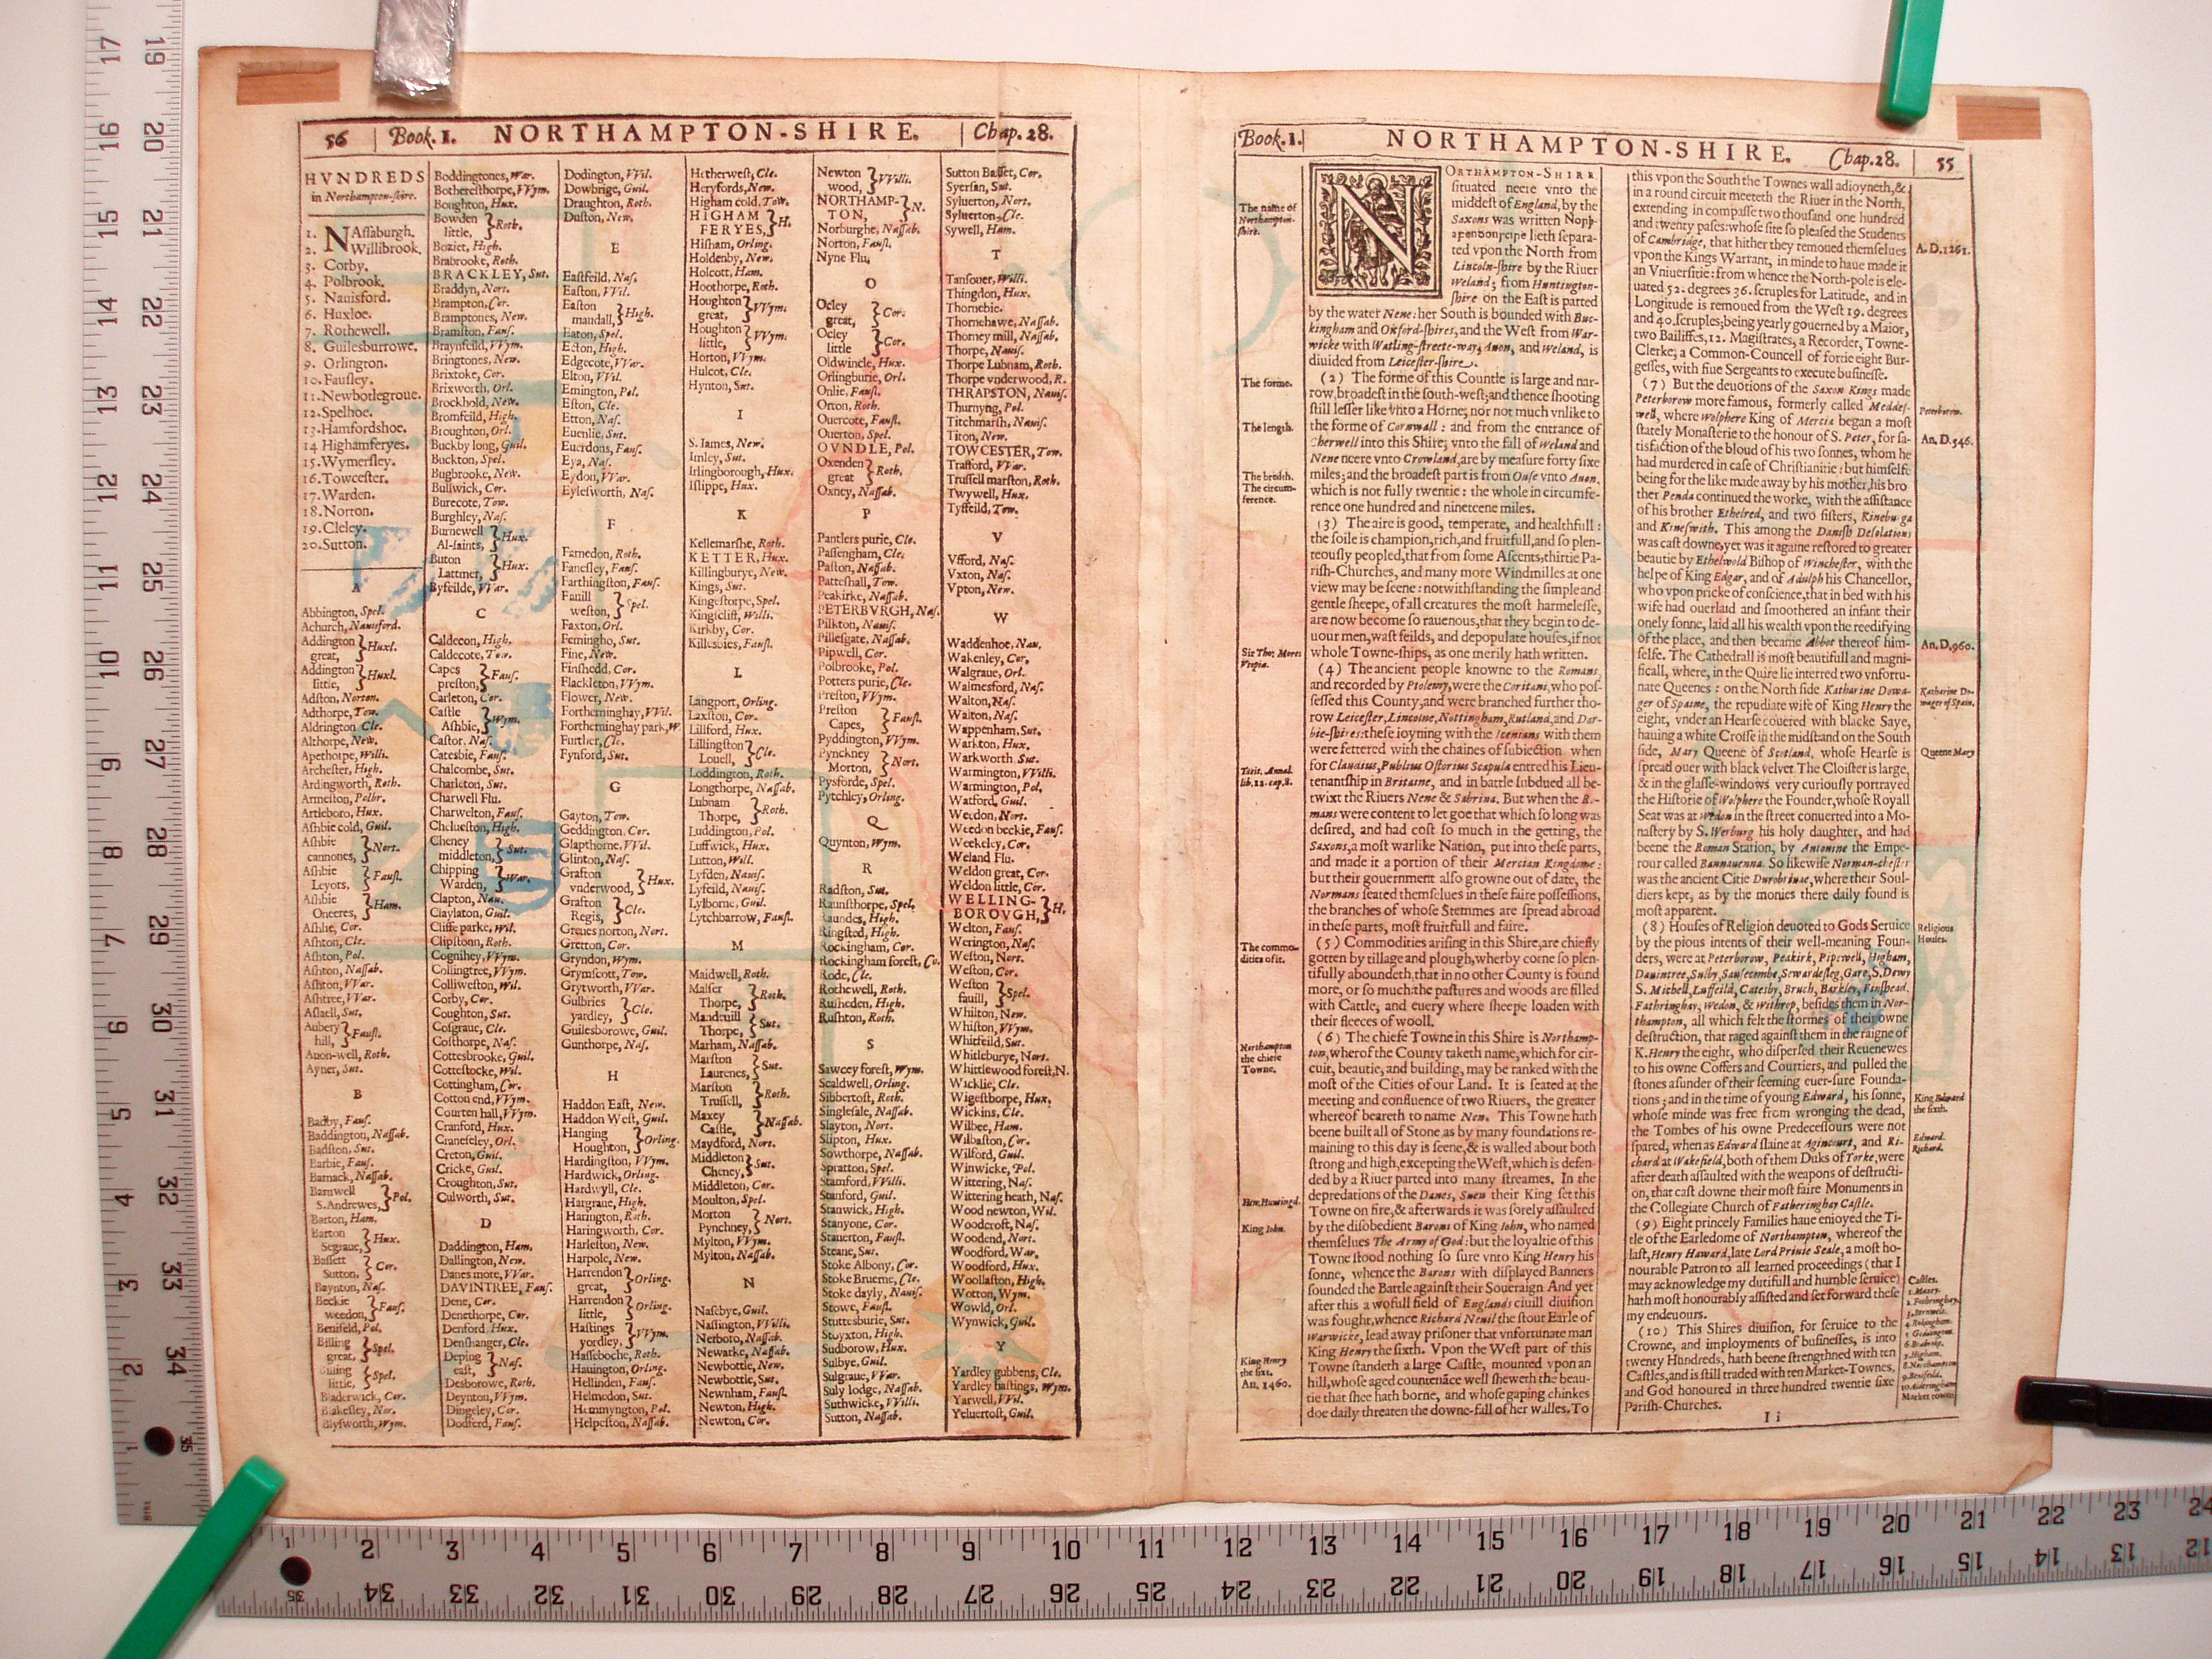 56 Book. I. NORTHAMPTON-SHIRE. Chap. 28.
HVNDREDS
in Northampton-shire.
1. NAssaburgh.
2. Willibrook.
3. Corby.
4. Polbrook.
5. Nauisford.
6. Huxloe.
7. Rothewell.
8. Guilesburrowe.
9. Orlington.
10. Fausley.
11. Newbotlegroue.
12. Spelhoe.
13. Hamfordshoe.
14 Highamferyes.
15. Wymersley.
16. Towcester.
17. Warden.
18. Norton.
19. Cleley.
20. Sutton.
A
Abbington, Spel.
Achurch, Nauisford.
Addington great, } Huxl.
Addington little, } Huxl.
Adston, Norton.
Adthorpe, Tow.
Aldrington Cle.
Althorpe, New.
Apethorpe, Willi.
Archester, High.
Ardingworth, Roth.
Armeston, Polbr.
Artleboro, Hux.
Ashbie cold, Guil.
Ashbie cannones, } Nort.
Ashbie Leyors, } Fausl.
Ashbie Oneeres, } Ham.
Ashlie, Cor.
Ashton, Cle.
Ashton, Pol.
Ashton, Nassab.
Ashton, VVar.
Ashtree, VVar.
Astaell, Sut.
Aubery hill, } Fausl.
Auon-well, Roth.
Ayner, Sut.
B
Badby, Faus.
Baddington, Nassab.
Badston, Sut.
Barbie, Faus.
Barnack, Nassab.
Barnwell S. Andrewes, } Pol.
Barton, Ham.
Barton Segraue, } Hux.
Bassett Sutton, } Cor.
Baynton, Nas.
Beckie weedon, } Faus.
Benifeld, Pol.
Billing great, } Spel.
Billing little, } Spel.
Bladerwick, Cor.
Blakesley, Nor.
Blysworth, Wym.
Boddingtones, War.
Bothersthorpe, VVym.
Boughton, Hux.
Bowden little, } Roth.
Boziet, High.
Brabrooke, Roth.
BRACKLEY, Sut.
Braddyn, Nort.
Brampton, Cor.
Bramptones, New.
Bramston, Faus.
Braynfeild, VVym.
Bringtones, New.
Brixtoke, Cor.
Brixworth, Orl.
Brockhold, New.
Bromfeild, High.
Broughton, Orl.
Buckby long, Guil.
Buckton, Spel.
Bugbrooke, New.
Bullwick, Cor.
Burecote, Tow.
Burghley, Nas.
Burnewell Al-saints, } Hux.
Buton Lattmer, } Hux.
Byfeilde, VVar.
C
Caldecon, High.
Caldecote, Tow.
Capes preston, } Faus.
Carleton, Cor.
Castle Ashbie, } Wym.
Castor, Nas.
Catesbie, Faus.
Chalcombe, Sut.
Charleton, Sut.
Charwell Flu.
Charwelton, Faus.
Chelueston, High.
Cheney middleton, } Sut.
Chipping Warden, } War.
Clapton, Nau.
Claylaton, Guil.
Cliffe parke, Wil.
Clipstonn, Roth.
Cognihey, VVym.
Collingtree, VVym.
Colliweston, Wil.
Corby, Cor.
Coughton, Sut.
Cosgraue, Cle.
Costhorpe, Nas.
Cottesbrooke, Guil.
Cottestocke, Wil.
Cottingham, Cor.
Cotton end, VVym.
Courten hall, VVym.
Cranford, Hux.
Craneseley, Orl.
Creton, Guil.
Cricke, Guil.
Croughton, Sut.
Culworth, Sut.
D
Daddington, Ham.
Dallington, New.
Danes more, VVar.
DAVINTREE, Faus.
Dene, Cor.
Denethorpe, Cor.
Denford, Hux.
Denshanger, Cle.
Deping east, } Nas.
Desborowe, Roth.
Deynton, VVym.
Dingeley, Cor.
Dodferd, Faus.
Dodington, VVil.
Dowbrige, Guil.
Draughton, Roth.
Duston, New.
E
Eastfeild, Nas.
Easton, VVil.
Easton maudall, } High.
Eaton, Spel.
Ecton, High.
Edgecote, VVar.
Elton, VVil.
Emington, Pol.
Eston, Cle.
Etton, Nas.
Euenlie, Sut.
Euerdons, Faus.
Eya, Nas.
Eydon, VVar.
Eylesworth, Nas.
F
Farnedon, Roth.
Fanesley, Faus.
Farthingston, Faus.
Fauill weston, } Spel.
Faxton, Orl.
Femingho, Sut.
Fine, New.
Finshedd, Cor.
Flackleton, VVym.
Flower, New.
Fortheminghay, VVil.
Fortheminghay park, W.
Further, Cle.
Fynford, Sut.
G
Gayton, Tow.
Geddington, Cor.
Glapthorne, VVil.
Glinton, Nas.
Grafton vnderwood, } Hux.
Grafton Regis, } Cle.
Grenes norton, Nort.
Gretton, Cor.
Gryndon, Wym.
Grymscott, Tow.
Grytworth, VVar.
Gulbries yardley, } Cle.
Guilesborowe, Guil.
Gunthorpe, Nas.
H
Haddon East, New.
Haddon West, Guil.
Hanging Houghton, } Orling.
Hardingston, VVym.
Hardwick, Orling.
Hardwyll, Cle.
Hargraue, High.
Harington, Roth.
Haringworth, Cor.
Harleston, New.
Harpole, New.
Harrendon great, } Orling.
Harrendon little, } Orling.
Hastings yordley, } VVym.
Hasseboche, Roth.
Hauington, Orling.
Hellinden, Faus.
Helmedon, Sut.
Hemmyngton, Pol.
Helpeston, Nassab.
Hetherwest, Cle.
Heryfords, New.
Higham cold, Tow.
HIGHAM FERYES, } H.
Hisham, Orling.
Holdenby, New.
Holcott, Ham.
Hoothorpe, Roth.
Houghton great, } VVym.
Houghton little, } VVym.
Horton, VVym.
Hulcot, Cle.
Hynton, Sut.
I
S. Iames, New.
Imley, Sut.
Irlingborough, Hux.
Islippe, Hux.
K
Kellemarshe, Roth.
KETTER, Hux.
Killingburye, New.
Kings, Sut.
Kingesthorpe, Spel.
Kingscliff, Willi.
Kirkby, Cor.
Killesbies, Fausl.
L
Langport, Orling.
Laxston, Cor.
Lillford, Hux.
Lillingston Louell, } Cle.
Loddington, Roth.
Longthorpe, Nassab.
Lubnam Thorpe, } Roth.
Luddington, Pol.
Luffwick, Hux.
Lutton, Will.
Lysden, Nauis.
Lyfeild, Nauis.
Lylborne, Guil.
Lytchbarrow, Fausl.
M
Maidwell, Roth.
Malser Thorpe, } Roth.
Mandeuill Thorpe, } Sut.
Marham, Nassab.
Marston Laurenes, } Sut.
Marston Trussell, } Roth.
Maxey Castle, } Nassab.
Maydford, Nort.
Middleton Cheney, } Sut.
Middleton, Cor.
Moulton, Spel.
Morton Pynchney, } Nort.
Mylton, VVym.
Mylton, Nassab.
N
Nasebye, Guil.
Nassington, VVilli.
Nerboro, Nassab.
Newarke, Nassab.
Newbottle, New.
Newbottle, Sut.
Newnham, Fausl.
Newton, High.
Newton, Cor.
Newton wood, } VVilli.
NORTHAMPTON, } N.
Norburghe, Nassab.
Norton, Fausl.
Nyne Flu.
O
Ocley great, } Cor.
Ocley little } Cor.
Oldwincle, Hux.
Orlingburie, Orl.
Onlie, Fausl.
Orton, Roth.
Ouercote, Fausl.
Ouerton, Spel.
OVNDLE, Pol.
Oxenden great } Roth.
Oxney, Nassab.
P
Pantlers purie, Cle.
Passengham, Cle.
Paston, Nassab.
Patteshall, Tow.
Peakirke, Nassab.
PETERBVRGH, Nas.
Pilkton, Nauis.
Pillesgate, Nassab.
Pipwell, Cor.
Polbrooke, Pol.
Potters purie, Cle.
Preston, VVym.
Preston Capes, } Fausl.
Pyddington, VVym.
Pynckney Morton, } Nort.
Pysforde, Spel.
Pytchley, Orling.
Q
Quynton, Wym.
R
Radston, Sut.
Raunsthorpe, Spel.
Raundes, High.
Ringsted, High.
Rockingham, Cor.
Rockingham forest, Co.
Rode, Cle.
Rothewell, Roth.
Rusheden, High.
Rushton, Roth.
S
Sawcey forest, Wym.
Scaldwell, Orling.
Sibbertoft, Roth.
Singlesale, Nassab.
Slayton, Nort.
Slipton, Hux.
Sowthorpe, Nassab.
Spratton, Spel.
Stamford, VVilli.
Stanford, Guil.
Stanwick, High.
Stanyone, Cor.
Stauerton, Fausl.
Steane, Sut.
Stoke Albony, Cor.
Stoke Brueme, Cle.
Stoke dayly, Nauis.
Stowe, Fausl.
Stuttesburie, Sut.
Stuyxton, High.
Sudborow, Hux.
Sulbye, Guil.
Sulgraue, VVar.
Suly lodge, Nassab.
Suthwicke, VVilli.
Sutton, Nassab.
Sutton Basset, Cor.
Syersan, Sut.
Syluerton, Nort.
Syluerton, Cle.
Sywell, Ham.
T
Tansouer, Willi.
Thingdon, Hux.
Thornebie.
Thornehawe, Nassab.
Thorney mill, Nassab.
Thorpe, Nauis.
Thorpe Lubnam, Roth.
Thorpe vnderwood, R.
THRAPSTON, Nauis.
Thurnyng, Pol.
Titchmarsh, Nauis.
Titon, New.
TOWCESTER, Tow.
Trafford, VVar.
Trussell marston, Roth.
Twywell, Hux.
Tyffeild, Tow.
V
Vfford, Nas.
Vxton, Nas.
Vpton, New.
W
Waddenhoe, Nau.
Wakenley, Cor.
Walgraue, Orl.
Walmesford, Nas.
Walton, Nas.
Walton, Nas.
Wappenham, Sut.
Warkton, Hux.
Warkworth Sut.
Warmington, VVilli.
Warmington, Pol.
Watford, Guil.
Weedon, Nort.
Weedon beckie, Faus.
Weekeley, Cor.
Weland Flu.
Weldon great, Cor.
Weldon little, Cor.
WELLINGBOROVGH, } H.
Welton, Faus.
Werington, Nas.
Weston, Nort.
Weston, Cor.
Weston fauill, } Spel.
Whilton, New.
Whiston, VVym.
Whitfeild, Sut.
Whitleburye, Nort.
Whittlewood forest, N.
Wicklie, Cle.
Wigesthorpe, Hux.
Wickins, Cle.
Wilbee, Ham.
Wilbaston, Cor.
Wilford, Guil.
Winwicke, Pol.
Wittering, Nas.
Wittering heath, Nas.
Wood newton, Wil.
Woodcroft, Nas.
Woodend, Nort.
Woodford, War.
Woodford, Hux.
Woollaston, High.
Wotton, Wym.
Wowld, Orl.
Wynwick, Guil.
Y
Yardley gubbens, Cle.
Yardley hastings, Wym.
Yarwell, VVil.
Yeluertoft, Guil.
Book. I. NORTHAMPTON-SHIRE. Chap. 28. 55
The name of Northampton-shire.
NORTHAMPTON-SHIRE
situated neere vnto the
middest of England, by the
Saxons was written
lieth separa-
ted vpon the North from
Lincoln-shire by the Riuer
Weland; from Huntington-
shire on the East is parted
by the water Nene: her South is bounded with Buc-
kingham and Oxford-shires, and the West from War-
wicke with Watling-streete-way; Auon, and Weland, is
diuided from Leicester-shire.
The forme.
(2) The forme of this Countie is large and nar-
row, broadest in the south-west; and thence shooting
still lesser like vnto a Horne; nor not much vnlike to
The length.
the forme of Cornwall: and from the entrance of
Cherwell into this Shire, vnto the fall of Weland and
Nene neere vnto Crowland, are by measure forty sixe
The bredth.
miles; and the broadest part is from Ouse vnto Auon,
The circumference.
which is not fully twentie: the whole in circumfe-
rence one hundred and nineteene miles.
(3) The aire is good, temperate, and healthfull:
the soile is champion, rich, and fruitfull, and so plen-
teously peopled, that from some Ascents, thirtie Pa-
rish-Churches, and many more Windmilles at one
view may be seene: notwithstanding the simple and
gentle sheepe, of all creatures the most harmelesse,
are now become so rauenous, that they begin to de-
uour men, wast feilds, and depopulate houses, if not
Sir Tho: Mores Vtopia.
whole Towne-ships, as one merily hath written.
(4) The ancient people knowne to the Romans,
and recorded by Ptolemy, were the Coritani, who pos-
sessed this County, and were branched further tho-
row Leicester, Lincolne, Nottingham, Rutland, and Dar-
bie-shires: these ioyning with the Icenians with them
were fettered with the chaines of subiection when
Tacit. Annal. lib. 12. cap. 8.
for Claudius, Publius Ostorius Scapula entred his Lieu-
tenantship in Britaine, and in battle subdued all be-
twixt the Riuers Nene & Sabrina. But when the Ro-
mans were content to let goe that which so long was
desired, and had cost so much in the getting, the
Saxons, a most warlike Nation, put into these parts,
and made it a portion of their Mercian Kingdome:
but their gouernment also growne out of date, the
Normans seated themselues in these faire possessions,
the branches of whose Stemmes are spread abroad
in these parts, most fruitfull and faire.
The commodities of it.
(5) Commodities arising in this Shire, are chiefly
gotten by tillage and plough, wherby corne so plen-
tifully aboundeth, that in no other County is found
more, or so much: the pastures and woods are filled
with Cattle, and euery where sheepe loaden with
their fleeces of wooll.
Northampton the chiefe Towne.
(6) The chiefe Towne in this Shire is Northamp-
ton, wherof the County taketh name, which for cir-
cuit, beautie, and building, may be ranked with the
most of the Cities of our Land. It is seated at the
meeting and confluence of two Riuers, the greater
whereof beareth to name Nen. This Towne hath
beene built all of Stone, as by many foundations re-
maining to this day is seene, & is walled about both
strong and high, excepting the West, which is defen-
ded by a Riuer parted into many streames. In the
Hen. Huntingd.
depredations of the Danes, Suen their King set this
Towne on fire, & afterwards it was sorely assaulted
King Iohn.
by the disobedient Barons of King Iohn, who named
themselues The Army of God: but the loyaltie of this
Towne stood nothing so sure vnto King Henry his
sonne, whence the Barons with displayed Banners
sounded the Battle against their Soueraign And yet
after this a wofull field of Englands ciuill diuision
was fought, whence Richard Neuil the stout Earle of
Warwicke, lead away prisoner that vnfortunate man
King Henry the sixt. An. 1460.
King Henry the sixth. Vpon the West part of this
Towne standeth a large Castle, mounted vpon an
hill, whose aged countenãce well sheweth the beau-
tie that shee hath borne, and whose gaping chinkes
doe daily threaten the downe-fall of her walles. To
this vpon the South the Townes wall adioyneth, &
in a round circuit meeteth the Riuer in the North,
extending in compasse two thousand one hundred
and twenty pases: whose site so pleased the Students
A. D. 1261.
of Cambridge, that hither they remoued themselues
vpon the Kings Warrant, in minde to haue made it
an Vniuersitie: from whence the North-pole is ele-
uated 52. degrees 36. scruples for Latitude, and in
Longitude is remoued from the West 19. degrees
and 40. scruples; being yearly gouerned by a Maior,
two Bailiffes, 12. Magistrates, a Recorder, Towne-
Clerke, a Common-Councell of fortie eight Bur-
gesses, with fiue Sergeants to execute businesse.
(7) But the deuotions of the Saxon Kings made
Peterborow.
Peterborow more famous, formerly called Meddes-
well, where Wolphere King of Mercia began a most
An. D. 546.
stately Monasterie to the honour of S. Peter, for sa-
tisfaction of the bloud of his two sonnes, whom he
had murdered in case of Christianitie: but himselfe
being for the like made away by his mother, his bro
ther Penda continued the worke, with the assistance
of his brother Ethelred, and two sisters, Kineburga
and Kineswith. This among the Danish Desolations
was cast downe, yet was it againe restored to greater
beautie by Ethelwold Bishop of Winchester, with the
helpe of King Edgar, and of Adulph his Chancellor,
who vpon pricke of conscience, that in bed with his
wife had ouerlaid and smoothered an infant their
onely sonne, laid all his wealth vpon the reedifying
An. D. 960.
of the place, and then became Abbot thereof him-
selfe. The Cathedrall is most beautifull and magni-
ficall, where, in the Quire lie interred two vnfortu-
Katharine Dowager of Spain.
nate Queenes: on the North side Katharine Dowa-
ger of Spaine, the repudiate wife of King Henry the
eight, vnder an Hearse couered with blacke Saye,
hauing a white Crosse in the midst and on the South
Queene Mary
side, Mary Queene of Scotland, whose Hearse is
spread ouer with black veluet. The Cloister is large,
& in the glasse-windows very curiously portrayed
the Historie of Wolphere the Founder, whose Royall
Seat was at Wedon in the street conuerted into a Mo-
nastery by S. Werburg his holy daughter, and had
beene the Roman Station, by Antonine the Empe-
rour called Bannauenna. So likewise Norman-chester
was the ancient Citie Durobriuæ, where their Soul-
diers kept, as by the monies there daily found is
most apparent.
Religious Houses.
(8) Houses of Religion deuoted to Gods Seruice
by the pious intents of their well-meaning Foun-
ders, were at Peterborow, Peakirk, Pipewell, Higham,
Dauintree, Sulby, Sausecombe, Sewardesleg, Gare, S. Dewy
S. Michell, Luffeild, Catesby, Bruch, Barkley, Finshead,
Fathringhay, Wedon, & Withrop, besides them in Nor-
thampton, all which felt the stormes of their owne
destruction, that raged against them in the raigne of
K. Henry the eight, who dispersed their Reuenewes
to his owne Coffers and Courtiers, and pulled the
stones asunder of their seeming euer-sure Founda-
King Edward the sixth.
tions; and in the time of young Edward, his sonne,
whose minde was free from wronging the dead,
the Tombes of his owne Predecessours were not
Edward. Richard.
spared, when as Edward slaine at Agincourt, and Ri-
chard at Wakefield, both of them Duks of Yorke, were
after death assaulted with the weapons of destructi-
on, that cast downe their most faire Monuments in
the Collegiate Church of Fatheringhay Castle.
(9) Eight princely Families haue enjoyed the Ti-
tle of the Earledome of Northampton, whereof the
last, Henry Haward, late Lord Priuie Seale, a most ho-
nourable Patron to all learned proceedings (that I
may acknowledge my dutifull and humble seruice)
hath most honourably assisted and set forward these
my endeuours.
(10) This Shires diuision, for seruice to the
Crowne, and imployments of businesses, is into
twenty Hundreds, hath beene strengthned with ten
Castles, and is still traded with ten Market-Townes,
and God honoured in three hundred twentie sixe
Parish-Churches.
Castles.
1. Maxey.
2. Fothringhay.
7. Higham.
8. Northampton
Market townes
I i